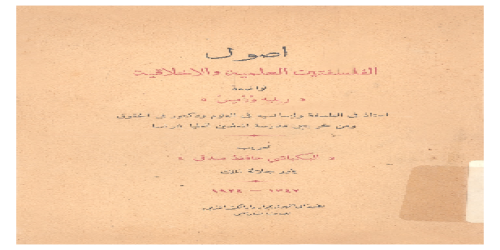 اصول
الفلسفتين العلمية والاخلاقية
لواضعة
« رينيه ورمس »
استاذ في الفلسفة وليسانسيه في العلوم ودكتور في الحقوق
ومن خريجي مدرسة المعلمين العليا فرنسا
تعريب
« البكباشي حافظ صدقي »
١٣٤٢ - ١٩٢٤